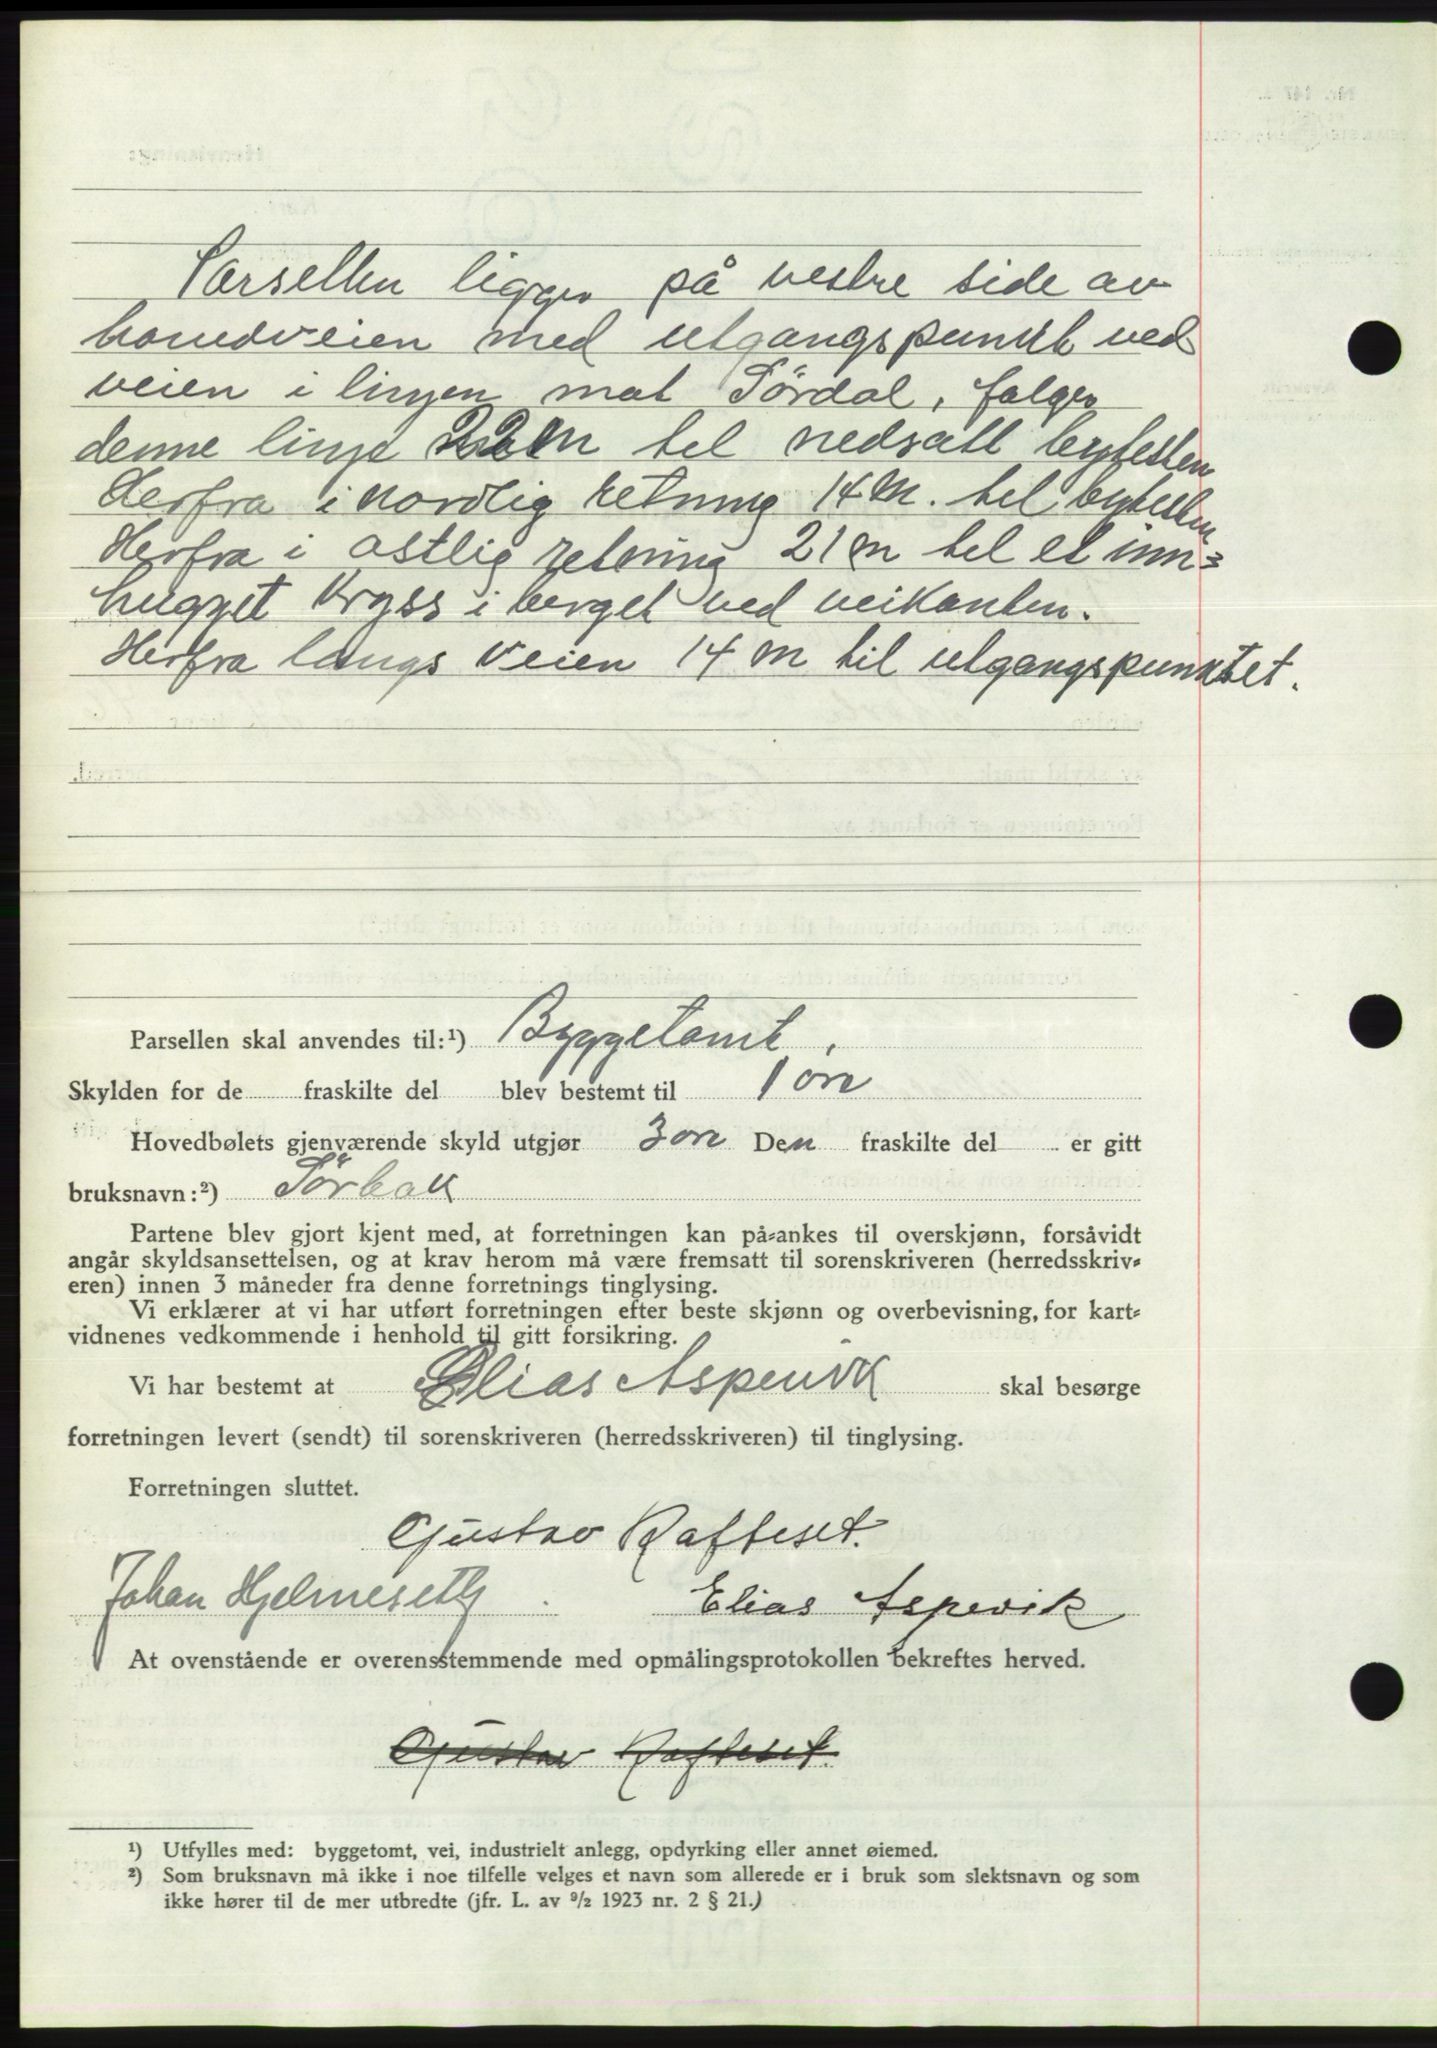 Parsellen ligger på vestre side av
hovedveien med utgangspunkt ved
veien i linjen mot Sördal, følger
denne linje 22 m til nedsatt byttesten
Herfra i nordlig retning 14 m. til byttesten
Herfra i østlig retning 21 m til et inn=
hugget kryss i berget ved veikanten.
Herfra langs veien 14 m til utgangspunktet.
Parsellen skal anvendes til:¹) Byggetomt.
Skylden for de fraskilte del blev bestemt til 1 øre
Hovedbølets gjenværende skyld utgjør 3 øre Den fraskilte del er gitt
bruksnavn:²) Sörbak
Partene blev gjort kjent med, at forretningen kan på=ankes til overskjønn, forsåvidt
angår skyldsansettelsen, og at krav herom må være fremsatt til sorenskriveren (herredsskriv=
eren) innen 3 måneder fra denne forretnings tinglysing.
Vi erklærer at vi har utført forretningen efter beste skjønn og overbevisning, for kart=
vidnenes vedkommende i henhold til gitt forsikring.
Vi har bestemt at Elias Aspevik skal besørge
forretningen levert (sendt) til sorenskriveren (herredsskriveren) til tinglysing.
Forretningen sluttet.
Gustav Rafteset.
Johan Hjelmeseth Elias Aspevik
At ovenstående er overensstemmende med opmålingsprotokollen bekreftes herved.
Gustav Rafteset.
¹) Utfylles med: byggetomt, vei, industrielt anlegg, opdyrking eller annet øiemed.
²) Som bruksnavn må ikke i noe tilfelle velges et navn som allerede er i bruk som slektsnavn og som
ikke hører til de mer utbredte (jfr. L. av ⁹/₂ 1923 nr. 2 § 21.)